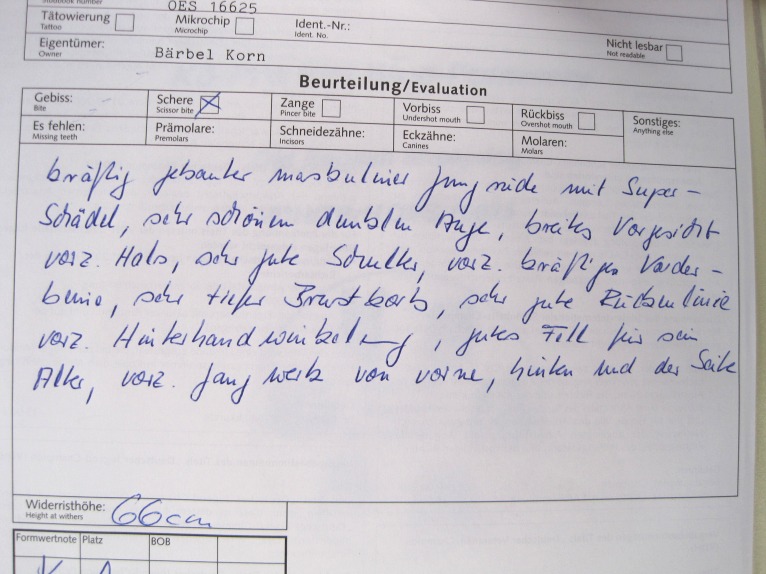 OES 16625
Tätowierung Mikrochip Ident.-Nr.:
Tattoo Microchip Ident. No.
Eigentümer: Bärbel Korn Nicht lesbar
Owner Not readable
Beurteilung/Evaluation
Gebiss: Schere Zange Vorbiss Rückbiss Sonstiges:
Bite Scissor bite Pincer bite Undershot mouth Overshot mouth Anything else
Es fehlen: Prämolare: Schneidezähne: Eckzähne: Molaren:
Missing teeth Premolars Incisors Canines Molars
kräftig gebauter maskuliner Jungrüde mit Super-
Schädel, sehr schönem dunklem Auge, breites Vorgesicht
vorz. Hals, sehr gute Schulter, vorz. kräftigen Vorder-
beine, sehr tiefer Brustkorb, sehr gute Rückenlinie
vorz. Hinterhandwinkelung, gutes Fell für sein
Alter, vorz. Gangwerk von vorne, hinten und der Seite
Widerristhöhe: 66cm
Height at withers
Formwertnote Platz BOB